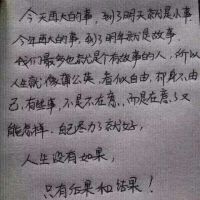 今天再大的事，到了明天就是小事
今年再大的事，到了明年就是故事
我们最多也就是个有故事的人，所以
人生就像蒲公英，看似自由，却身不由
己，有些事，不是不在意，而是在意了又
能怎样，自己尽力了就好，
人生没有如果，
只有后果和结果！